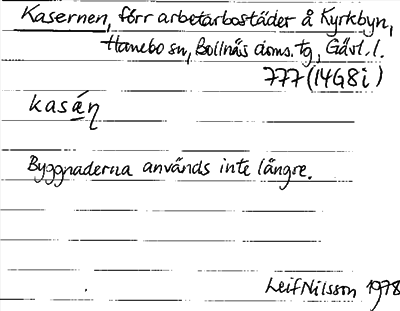 Kasernen, förr arbetarbostäder å Kyrkbyn,
Hanebo sn, Bollnäs doms. tg, Gävl. l.
777 (14G8i)
kasän
Byggnaderna används inte längre.
Leif Nilsson 1978